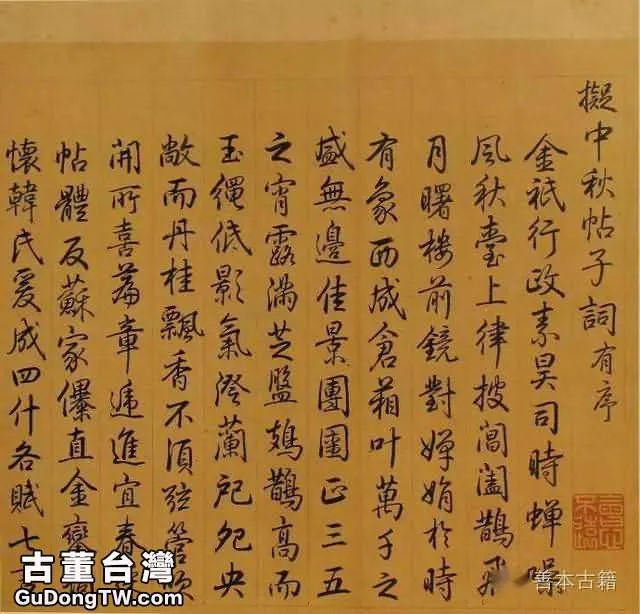 擬中秋帖子詞有序
金祇行政素昊司時蟬噪
風秋臺上律披閶闔鵲飛
月曙樓前鏡對嬋娟於時
有象西成倉葙叶萬千之
盛無邊佳景團圞正三五
之宵露滿芝盤鳷鵲高而
玉繩低影氣澄蘭央
敞而丹桂飄香不須弦管
開所喜篇章遞進宜春
帖體反蘇家儤直金鑾
懷韓氏爰成四什各賦七
古董台灣
GuDongTW.com
善本古籍